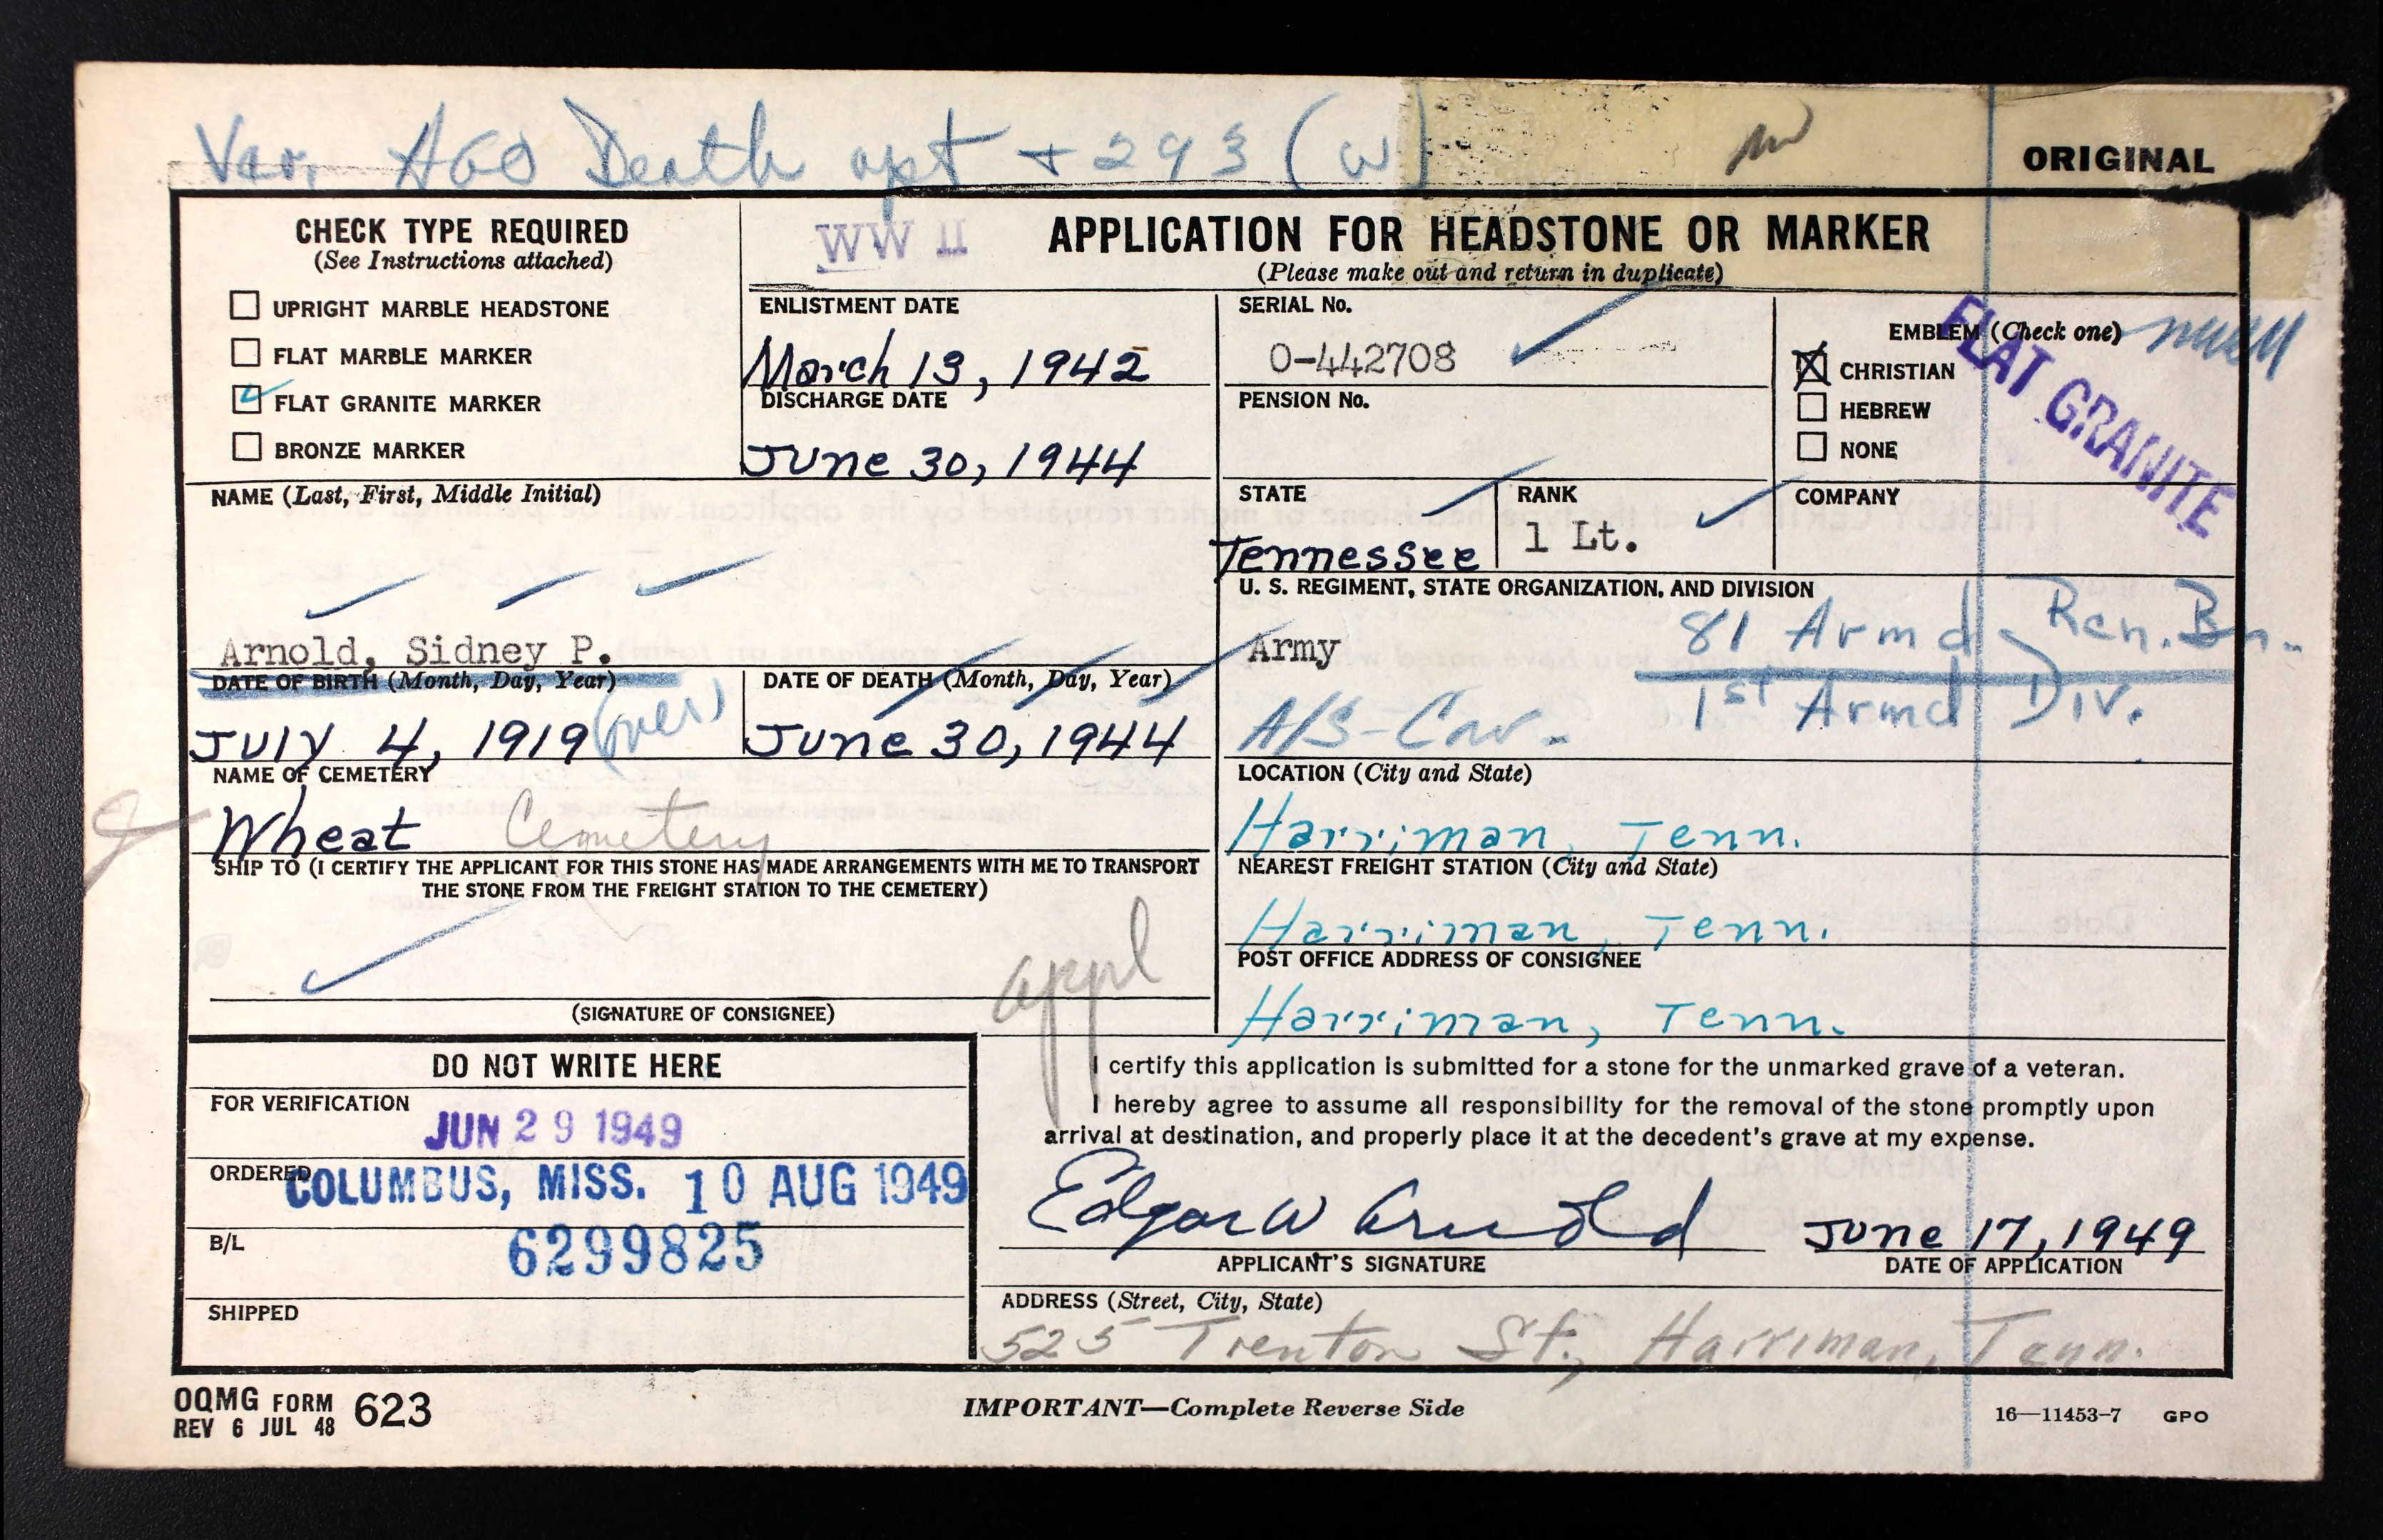 Ver. AGO Death rpt + 293 (W)
ORIGINAL
CHECK TYPE REQUIRED
(See Instructions attached)
UPRIGHT MARBLE HEADSTONE
FLAT MARBLE MARKER
FLAT GRANITE MARKER
BRONZE MARKER
WW II
APPLICATION FOR HEADSTONE OR MARKER
(Please make out and return in duplicate)
ENLISTMENT DATE
March 13, 1942
DISCHARGE DATE
June 30, 1944
SERIAL No.
O-442708
PENSION No.
EMBLEM (Check one)
CHRISTIAN
HEBREW
NONE
FLAT GRANITE
NAME (Last, First, Middle Initial)
Arnold, Sidney P.
STATE
Tennessee
RANK
1 Lt.
COMPANY
U. S. REGIMENT, STATE ORGANIZATION, AND DIVISION
Army
81 Armd Rcn. Bn.
1st Armd Div.
A/S-Cav.
DATE OF BIRTH (Month, Day, Year)
July 4, 1919 (over)
DATE OF DEATH (Month, Day, Year)
June 30, 1944
NAME OF CEMETERY
Wheat Cemetery
LOCATION (City and State)
Harriman, Tenn.
SHIP TO (I CERTIFY THE APPLICANT FOR THIS STONE HAS MADE ARRANGEMENTS WITH ME TO TRANSPORT
THE STONE FROM THE FREIGHT STATION TO THE CEMETERY)
appl
(SIGNATURE OF CONSIGNEE)
NEAREST FREIGHT STATION (City and State)
Harriman, Tenn.
POST OFFICE ADDRESS OF CONSIGNEE
Harriman, Tenn.
DO NOT WRITE HERE
FOR VERIFICATION
JUN 29 1949
ORDERED
COLUMBUS, MISS. 10 AUG 1949
B/L
6299825
SHIPPED
I certify this application is submitted for a stone for the unmarked grave of a veteran.
I hereby agree to assume all responsibility for the removal of the stone promptly upon
arrival at destination, and properly place it at the decedent's grave at my expense.
Edgar W Arnold
June 17, 1949
APPLICANT'S SIGNATURE
DATE OF APPLICATION
ADDRESS (Street, City, State)
525 Trenton St., Harriman, Tenn.
OQMG FORM 623
REV 6 JUL 48
IMPORTANT—Complete Reverse Side
16—11453-7 GPO